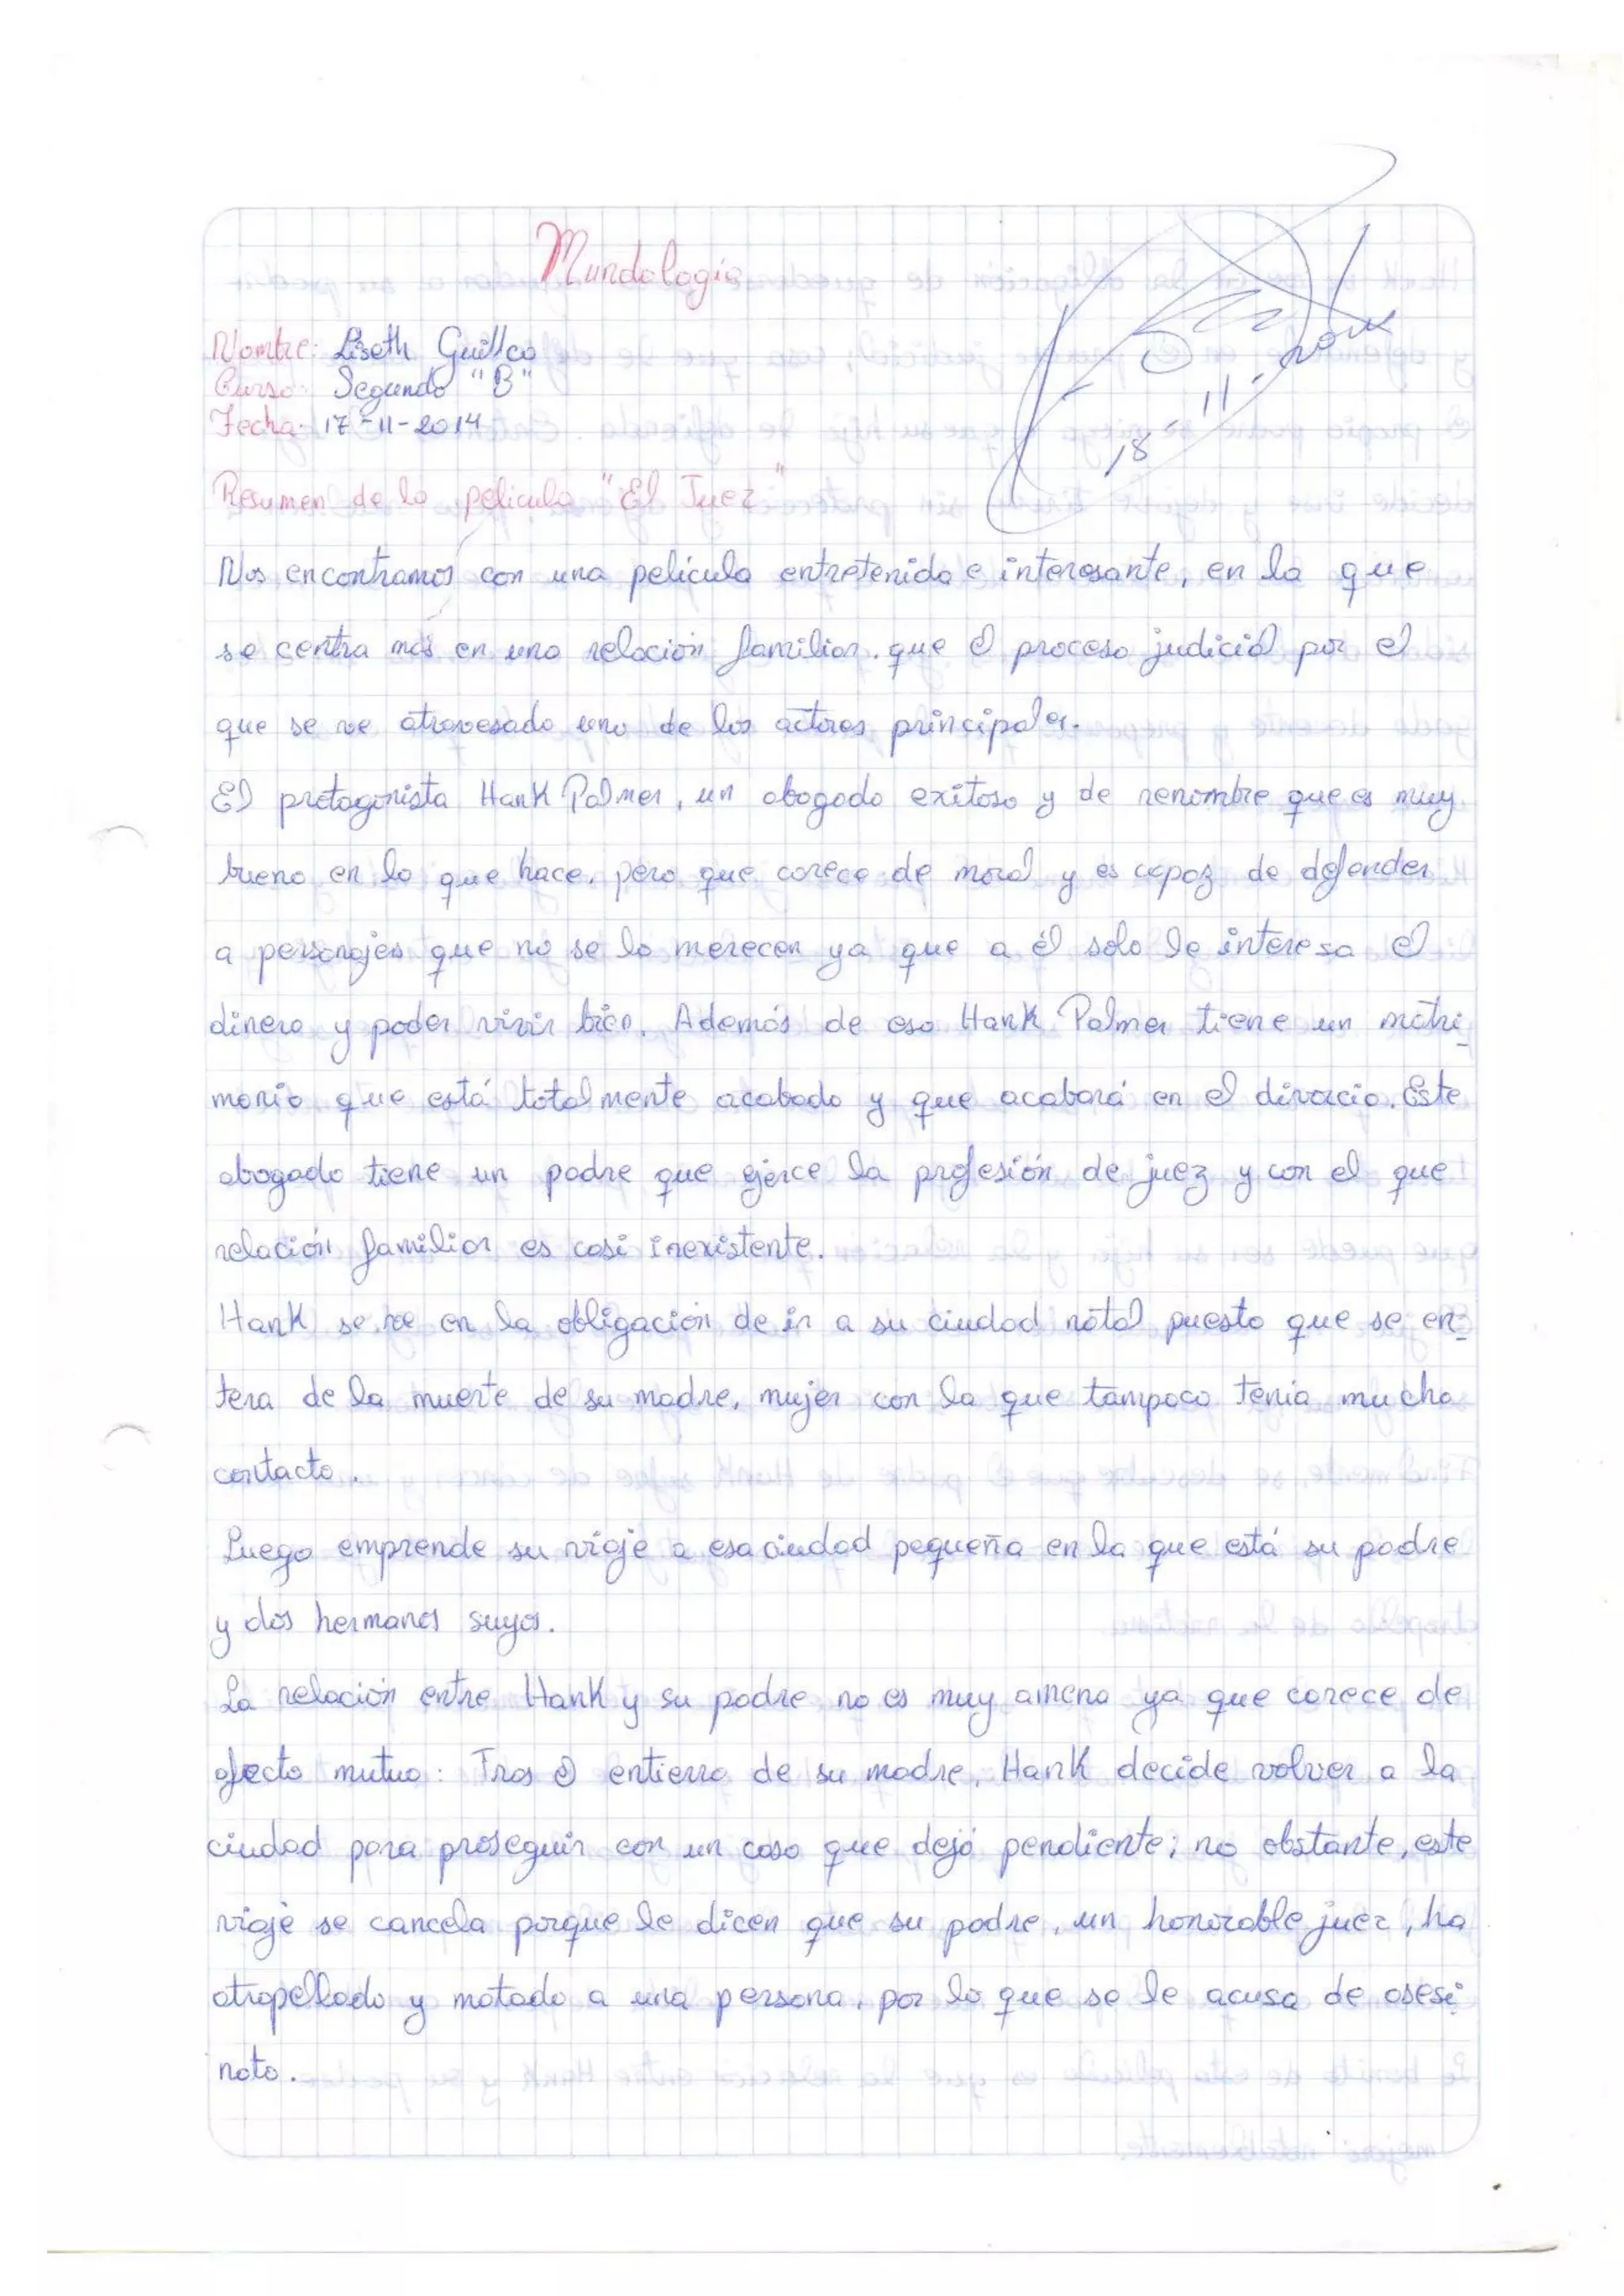 Mundología
Nombre: Liseth Guillca
Curso: Segundo "B"
Fecha: 17-11-2014
18-11-
Resumen de la película "El Juez"
Nos encontramos con una película entretenida e interesante, en la que
se centra más en una relación familiar que el proceso judicial por el
que se ve atravesado uno de los actores principales.
El protagonista Hank Palmer, un abogado exitoso y de renombre que es muy
bueno en lo que hace, pero que carece de moral y es capaz de defender
a personajes que no se lo merecen ya que a él solo le interesa el
dinero y poder vivir bien. Además de eso Hank Palmer tiene un matri-
monio que está totalmente acabado y que acabará en el divorcio. Este
abogado tiene un padre que ejerce la profesión de juez y con el que
relación familiar es casi inexistente.
Hank se ve en la obligación de ir a su ciudad natal puesto que se en-
tera de la muerte de su madre, mujer con la que tampoco tenía mucho
contacto.
Luego emprende su viaje a esa ciudad pequeña en la que está su padre
y dos hermanos suyos.
La relación entre Hank y su padre no es muy amena ya que carece de
afecto mutuo: Tras el entierro de su madre, Hank decide volver a la
ciudad para proseguir con un caso que dejó pendiente; no obstante, este
viaje se cancela porque le dicen que su padre, un honorable juez, ha
atropellado y matado a una persona, por lo que se le acusa de asesi
nato.